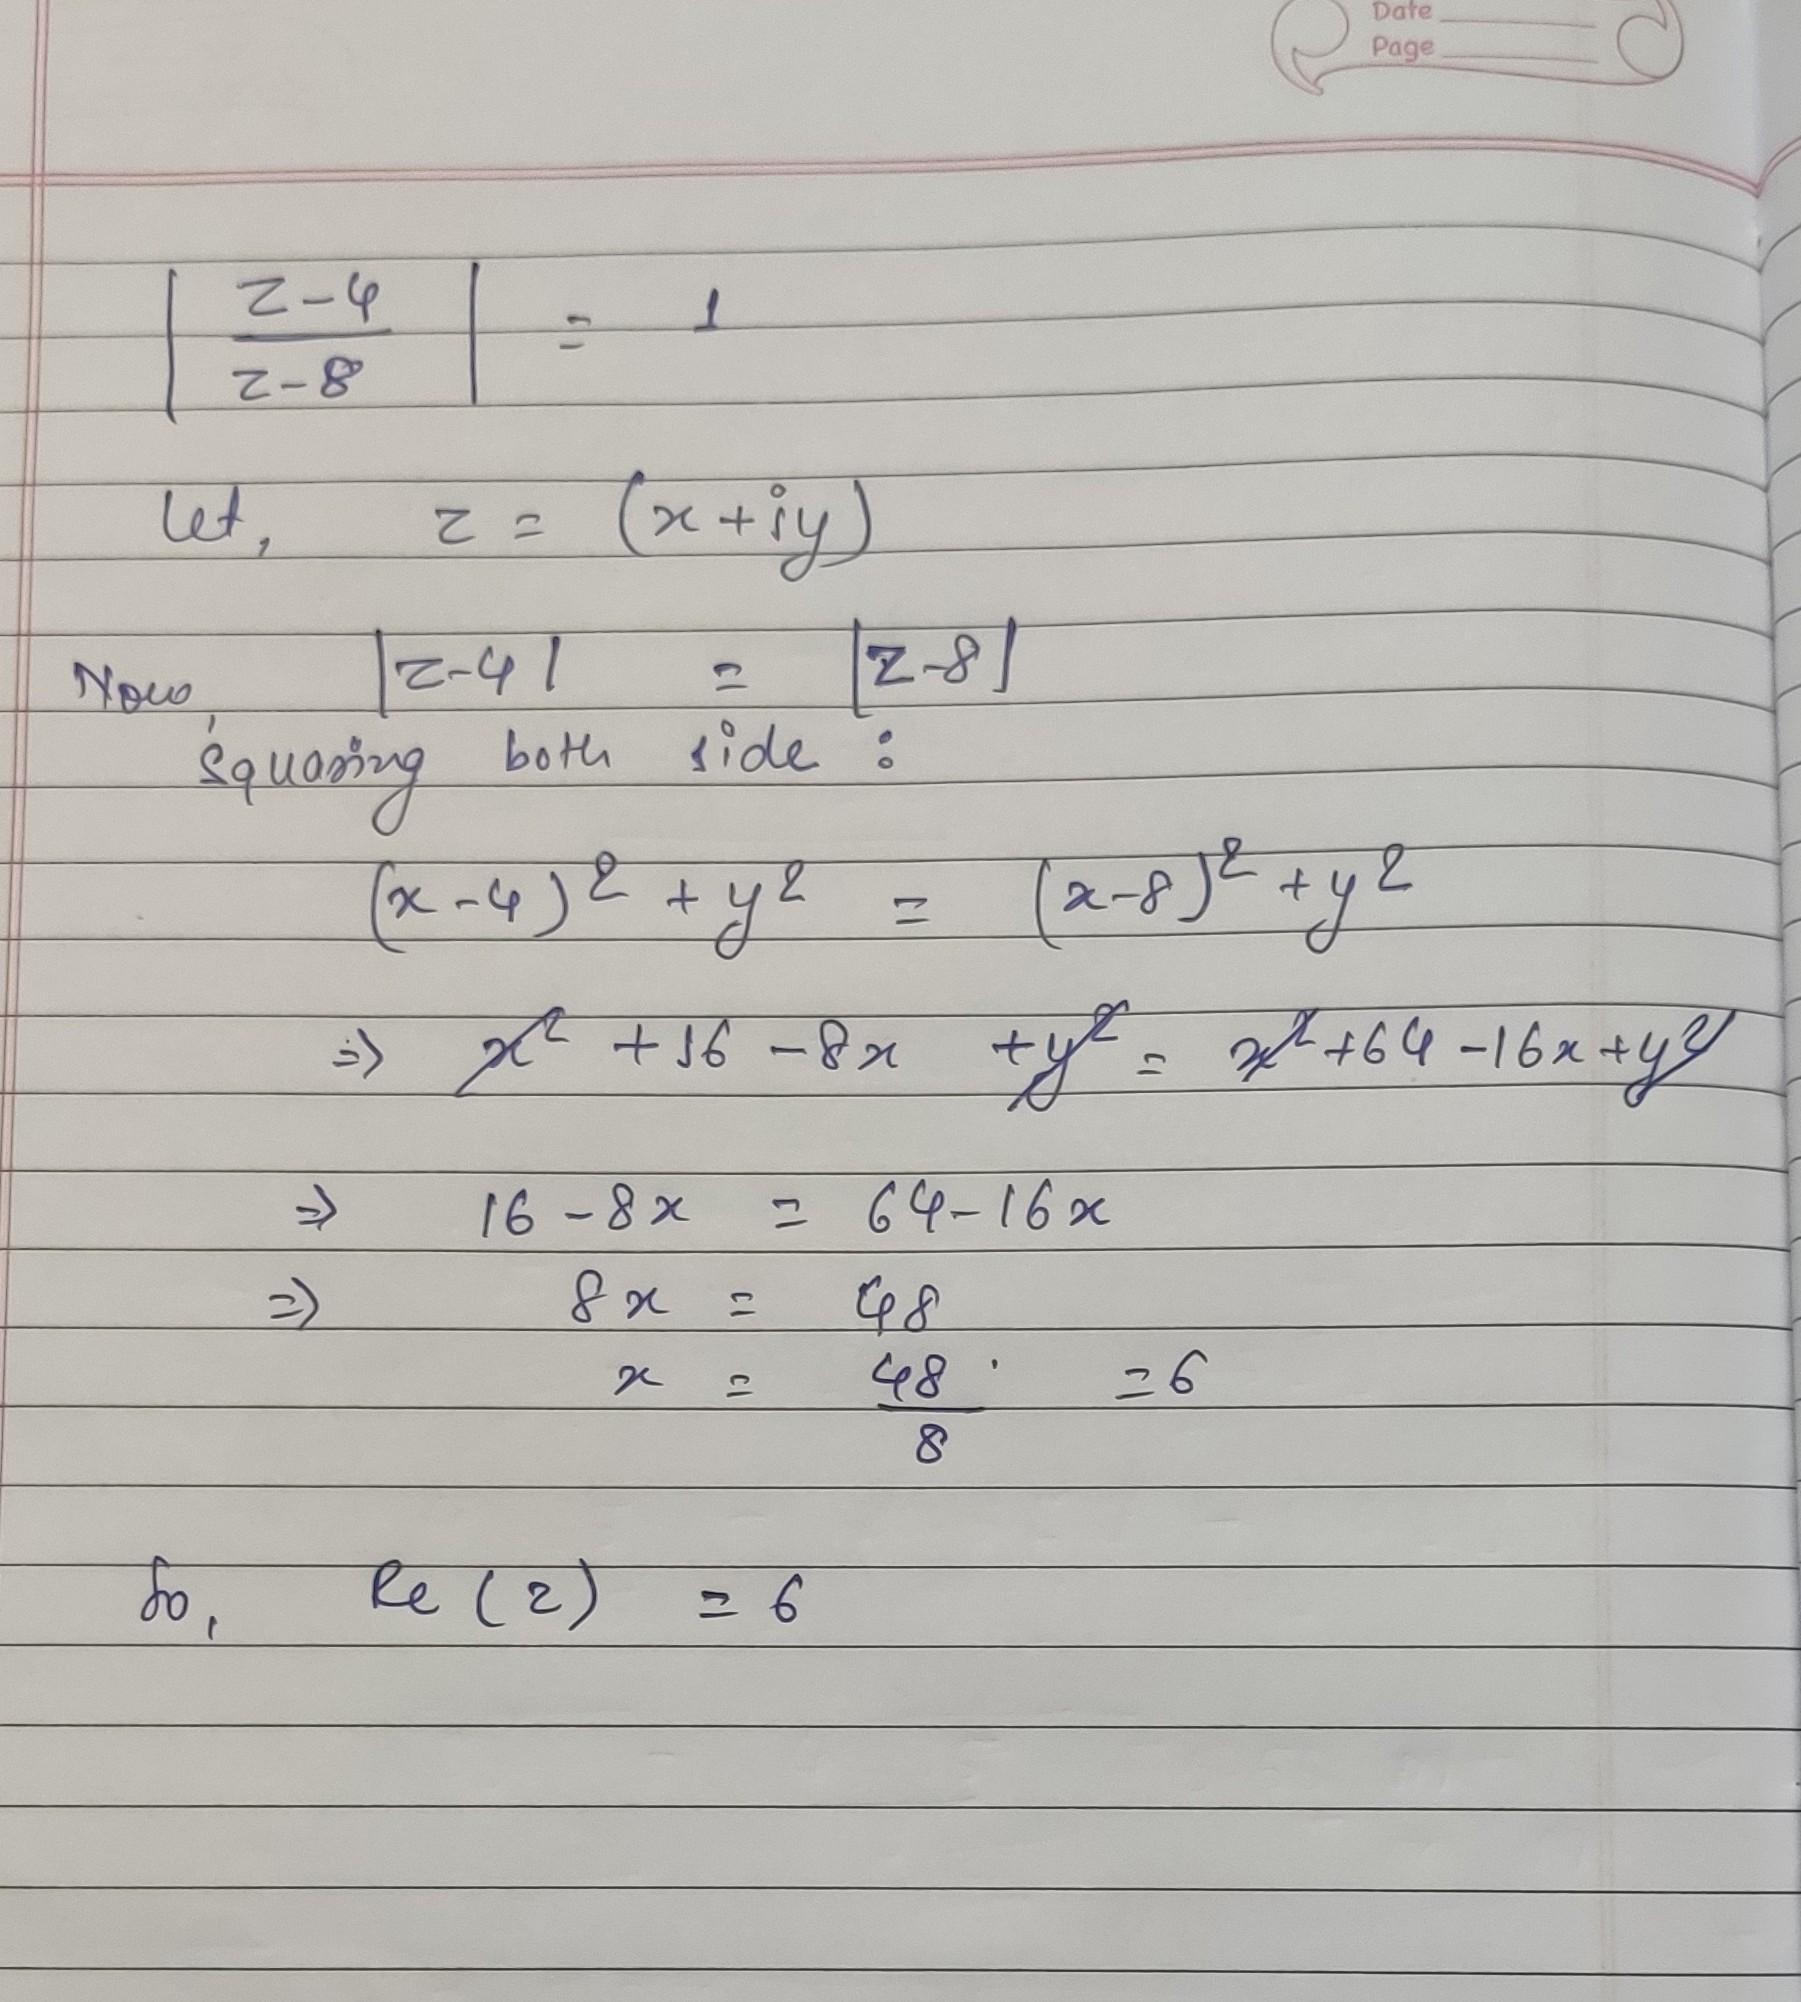 Date
Page
| z-4 / z-8 | = 1
Let, z = (x+iy)
Now, |z-4| = |z-8|
Squaring both side :
(x-4)² + y² = (x-8)² + y²
⇒ x² + 16 - 8x + y² = x² + 64 - 16x + y²
⇒ 16 - 8x = 64 - 16x
⇒ 8x = 48
x = 48/8 = 6
So, Re(z) = 6